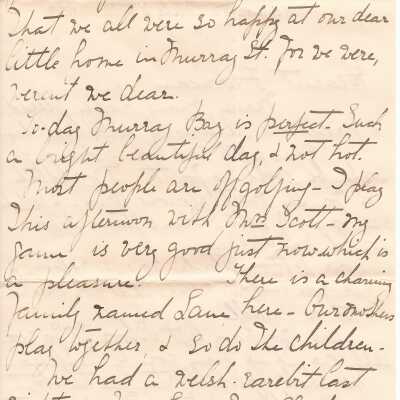 That we all were so happy at our dear
little home in Murray St. For we were,
weren't we dear.
To-day Murray Bay is perfect. Such
a bright beautiful day, & not hot.
Most people are off golfing - I play
This afternoon with Mrs Scott - my
game is very good just now which is
a pleasure. There is a charming
family named Lane here - Our mothers
play together, & so do The children -
We had a welsh-rarebit last